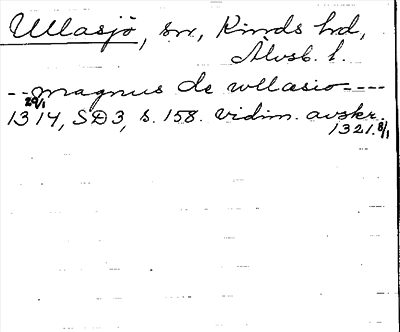 Ullasjö, sn, Kinds hd,
Älvsb. l.
--magnus de wllasio----
29/1
1314, SD3, s. 158. vidim. avskr.
1321.8/1